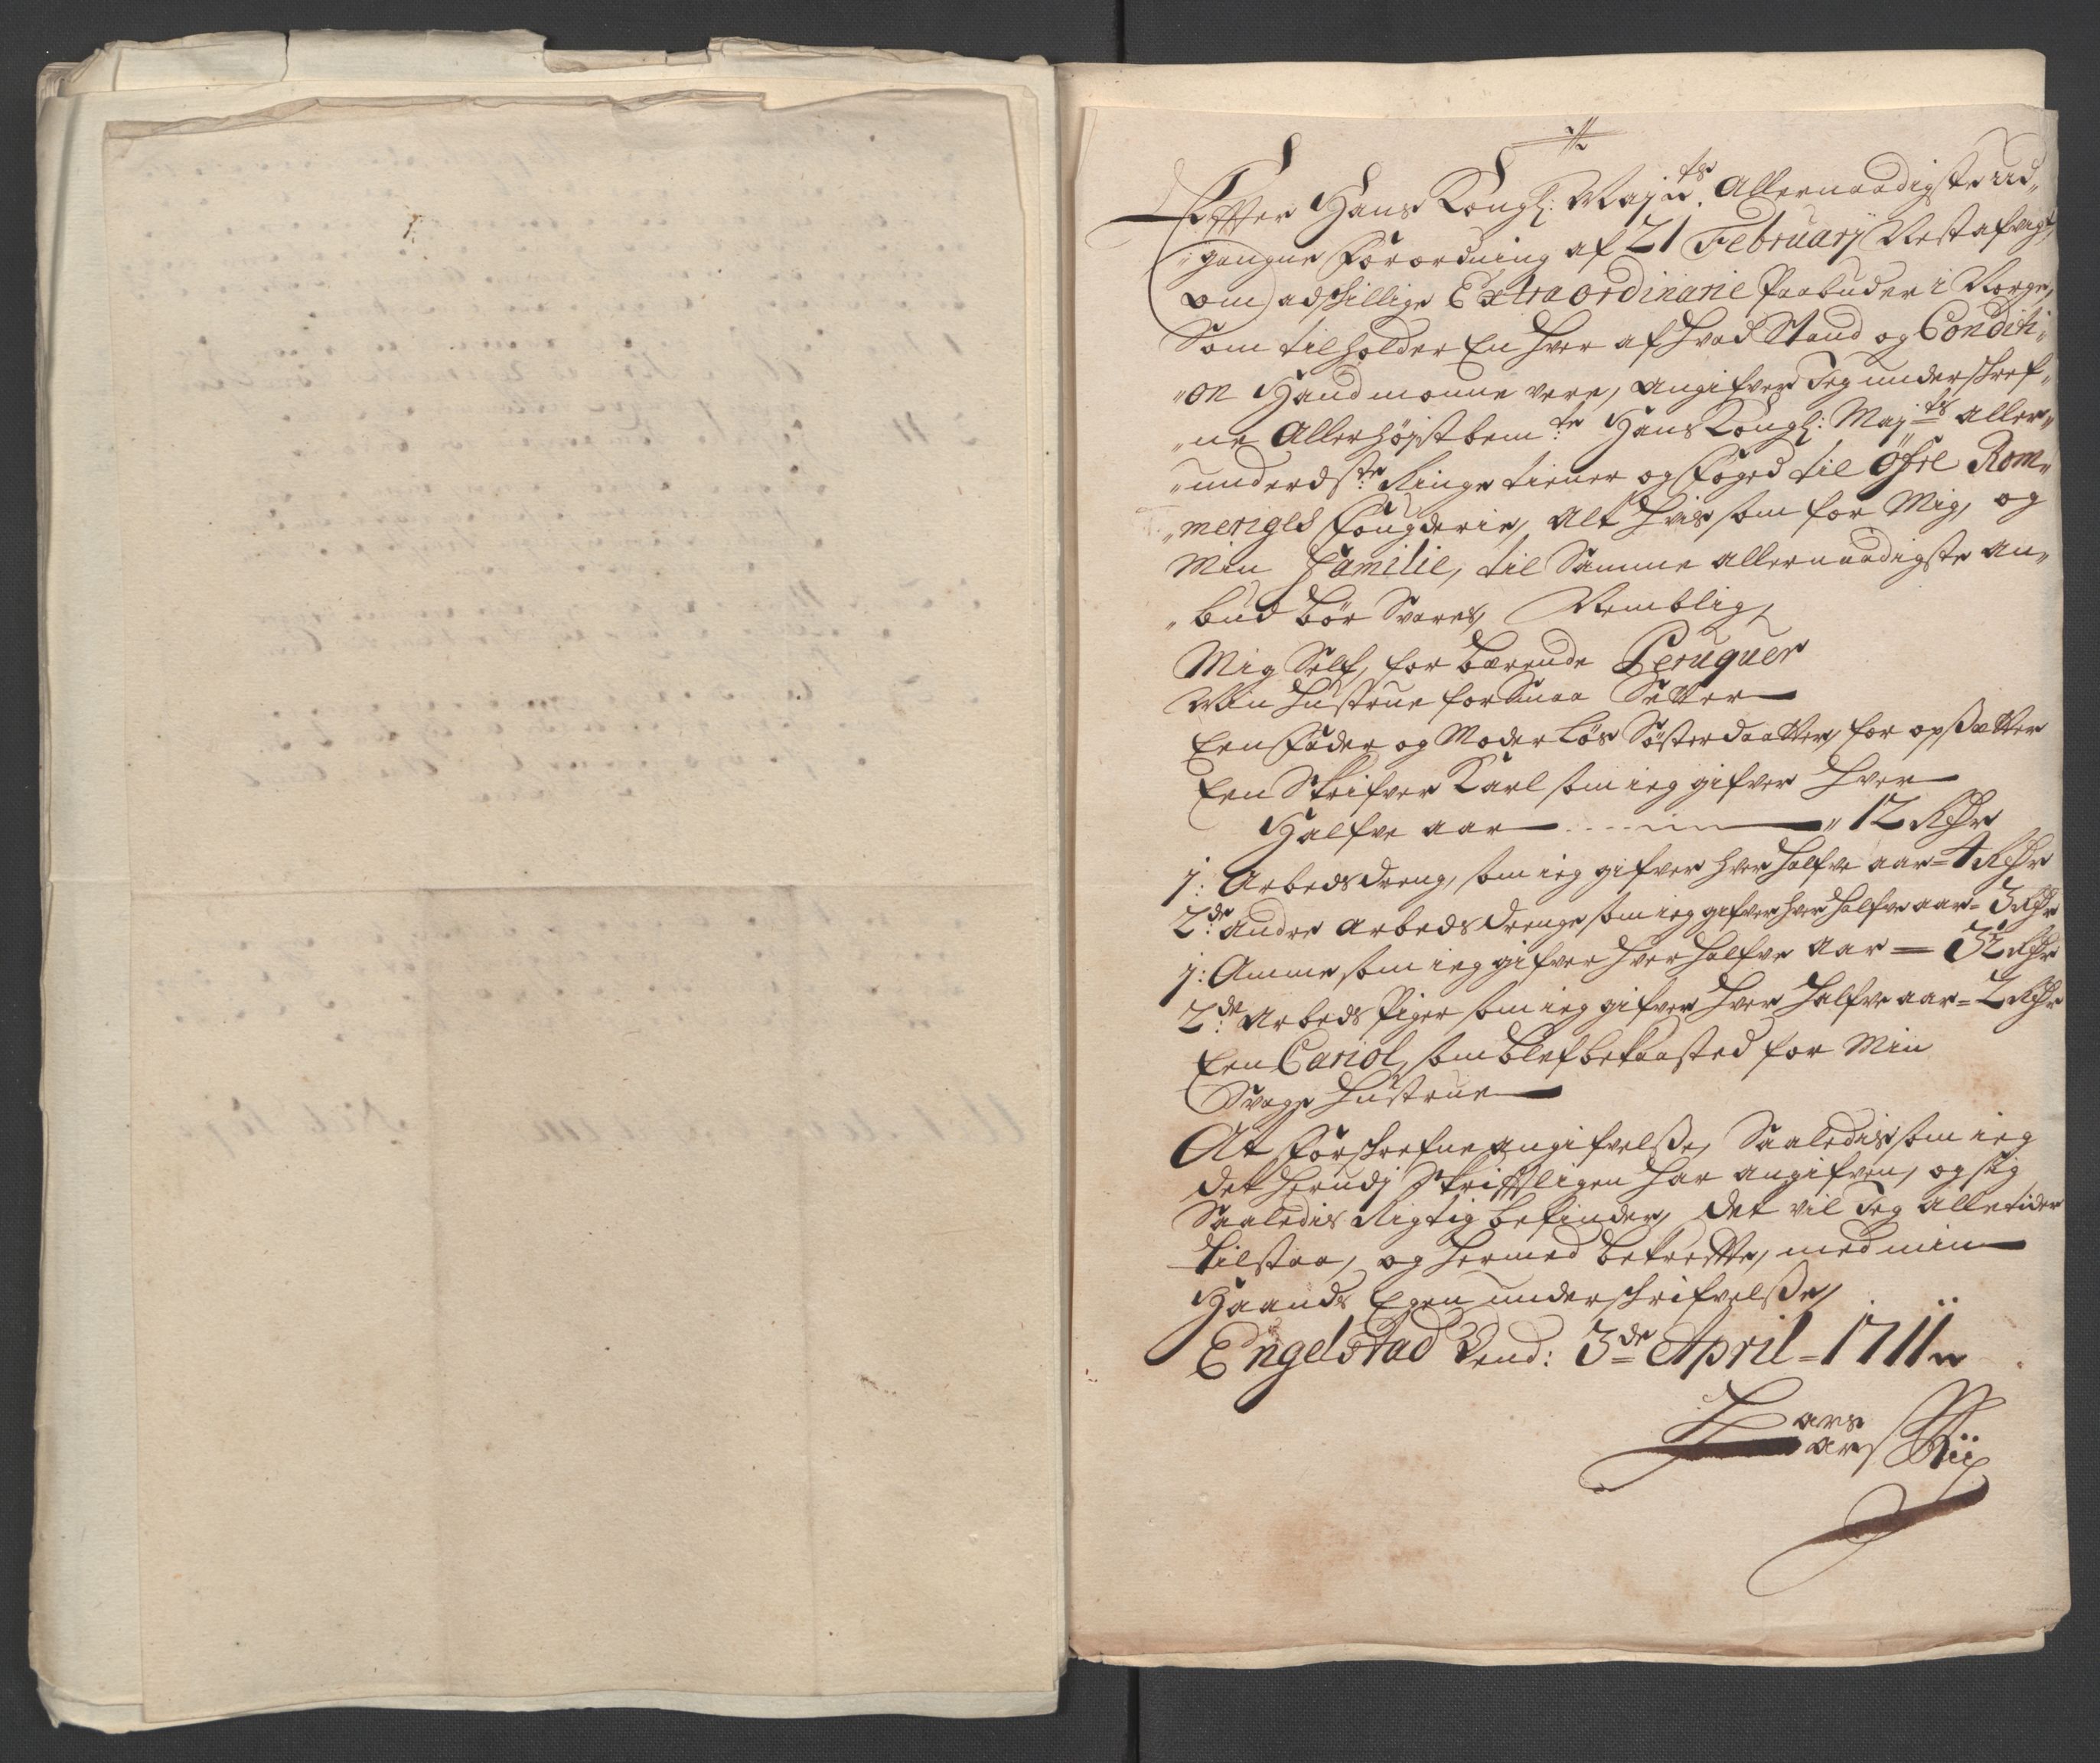 Effter Hans Kongl: Majts. Allernaadigste ud„
„gangne Forordning af 21 February Nest afvigt,
om adschillige Extraordinarie Paabuder i Norge,
Som tilholder En hver af hvad Stand og Conditi„
„on Hand monne vere, angifver Jeg underschref„
„ne Allerhøjstbemte: Hans Kongl: Majts aller„
„underdste: Ringe tiener og Foged til Øfre Rom„
„meriges Fougderie, alt hvis som for Mig, og
Min Familie, til Samme allernaadigste an„
„bud bør Svares, Nemblig,
Mig Self, for bærende Peruquer
Min Hustrue for Smaa Setter
Een Fader og Moder Løs Søsterdaatter, for opsætter
Een Skrifver Karl som ieg gifver hver
Halfve aar " 12 Rdr
1: Arbeds dreng, som ieg gifver hver halfve aar = 4 Rdr
2de: andre arbeds drenge som ieg gifver hver halfve aar = 3 Rdr
1: Amme som ieg gifver hver halfve aar = 3½ Rdr
2de: arbeds Piger som ieg gifver hver halfve aar = 2 Rdr
Een Cariol, som blef bekaasted for Min
Svage Hustrue
At forschrefne angifvelse, Saaledis som ieg
det herudj Skrifftligen har angifven, og sig
Saaledis Rigtig befinder, det vil Jeg alletider
tilstaa, og hermed bekrefte, med min
Haands Egen underschrifvelse,
Engelstad Dend: 3de April = 1711